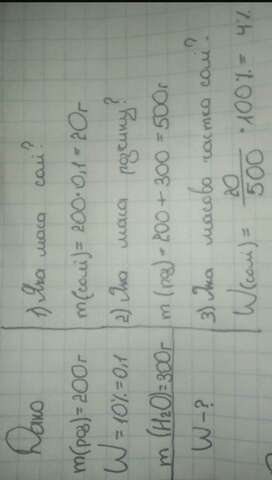 Дано
m(роз)=200г
W=10%=0,1
m(H2O)=300г
W-?
1) Яка маса солі?
m(солі)=200·0,1=20г
2) Яка маса розчину?
m(роз)=200+300=500г
3) Яка масова частка солі?
W(солі)= 20/500 ·100%= 4%